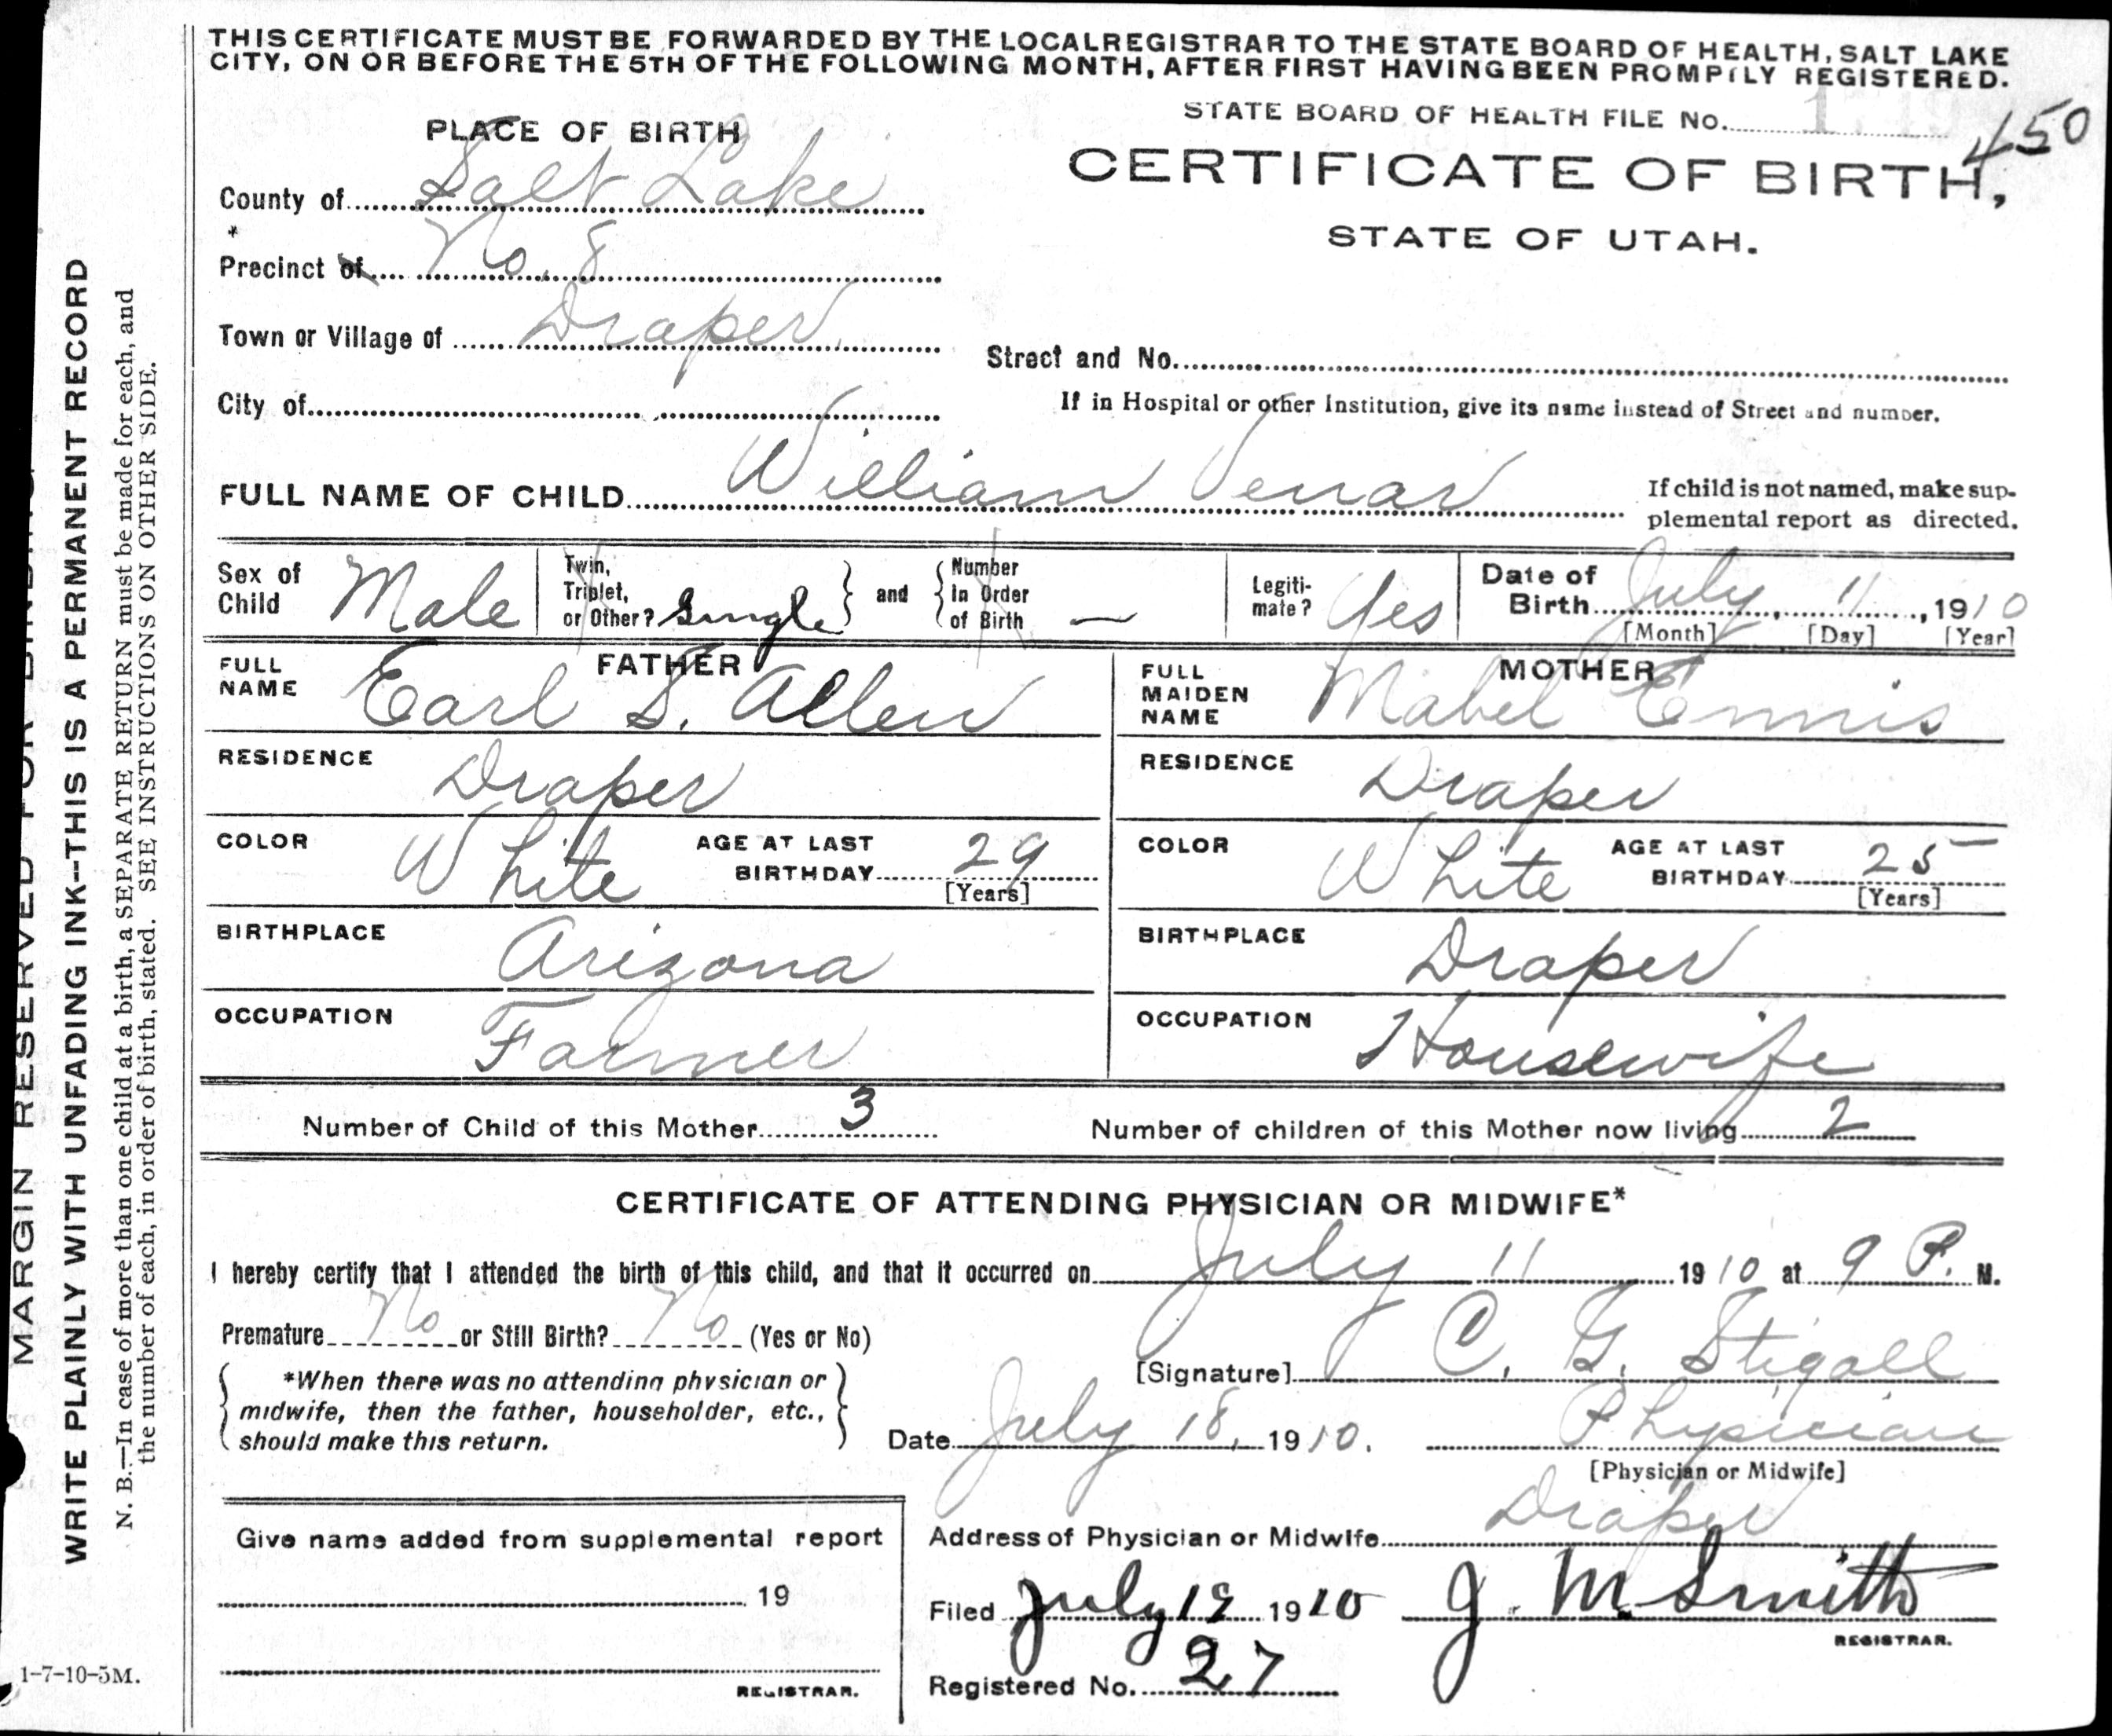 THIS CERTIFICATE MUST BE FORWARDED BY THE LOCAL REGISTRAR TO THE STATE BOARD OF HEALTH, SALT LAKE
CITY, ON OR BEFORE THE 5TH OF THE FOLLOWING MONTH, AFTER FIRST HAVING BEEN PROMPTLY REGISTERED.
STATE BOARD OF HEALTH FILE No.
450
PLACE OF BIRTH
CERTIFICATE OF BIRTH,
STATE OF UTAH.
County of Salt Lake
*
Precinct of No. 8
Town or Village of Draper
Street and No.
City of
If in Hospital or other Institution, give its name instead of Street and number.
FULL NAME OF CHILD William Venar
If child is not named, make sup-
plemental report as directed.
Sex of Child Male
Twin, Triplet, or Other? Single } and { Number In Order of Birth —
Legiti-mate? Yes
Date of Birth July 11, 1910
[Month] [Day] [Year]
FATHER
FULL NAME Earl S. Allen
MOTHER
FULL MAIDEN NAME Mabel Ennis
RESIDENCE Draper
RESIDENCE Draper
COLOR White AGE AT LAST BIRTHDAY 29 [Years]
COLOR White AGE AT LAST BIRTHDAY 25 [Years]
BIRTHPLACE Arizona
BIRTHPLACE Draper
OCCUPATION Farmer
OCCUPATION Housewife
Number of Child of this Mother 3
Number of children of this Mother now living 2
CERTIFICATE OF ATTENDING PHYSICIAN OR MIDWIFE*
I hereby certify that I attended the birth of this child, and that it occurred on July 11 1910 at 9 P. M.
Premature No or Still Birth? No (Yes or No)
[Signature] C. G. Stigall
*When there was no attending physician or
midwife, then the father, householder, etc.,
should make this return.
Date July 18, 1910.
Physician
[Physician or Midwife]
Address of Physician or Midwife Draper
Give name added from supplemental report
19
REGISTRAR.
Filed July 19 1910 J. M. Smith
REGISTRAR.
Registered No. 27
1-7-10-5M.
MARGIN RESERVED FOR
WRITE PLAINLY WITH UNFADING INK--THIS IS A PERMANENT RECORD
N. B.—In case of more than one child at a birth, a SEPARATE RETURN must be made for each, and
the number of each, in order of birth, stated. SEE INSTRUCTIONS ON OTHER SIDE.